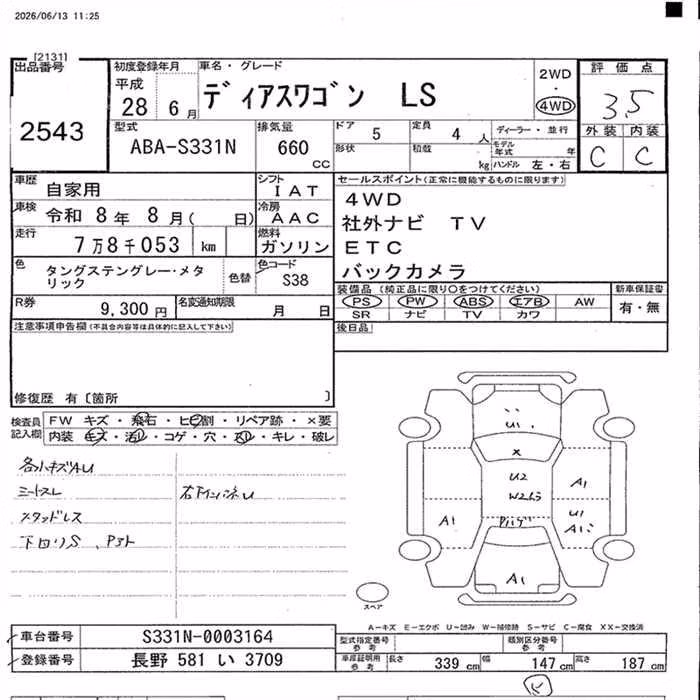 2026/06/13 11:25
[2131]
出品番号
2543
初度登録年月
平成
28 6月
車名・グレード
ディアスワゴン LS
2WD
・
4WD
評価点
3.5
外装 内装
C C
型式
ABA-S331N
排気量
660
CC
ドア
5
定員
4人
ディーラー・並行
形状
積載
kg
モデル年式
年
ハンドル 左・右
車歴
自家用
シフト
IAT
車検
令和 8年 8月( 日)
冷房
AAC
走行
7万8千053 km
燃料
ガソリン
色
タングステングレー・メタリック
色替
色コード
S38
R券
9,300円
名変通知期限
月 日
セールスポイント(正常に機能するものに限ります)
4WD
社外ナビ TV
ETC
バックカメラ
装備品(純正品に限り○をつけてください)
PS PW ABS エアB AW
SR ナビ TV カワ
新車保証書
有・無
後日品
注意事項申告欄(不具合内容等は具体的に記入して下さい)
修復歴 有〔箇所 〕
検査員
記入欄
FW キズ・飛石・ヒビ割・リペア跡・×要
内装 キズ・汚レ・コゲ・穴・スレ・キレ・破レ
各小キズAU
シートスレ
スタッドレス
下回りS
右下インパネU
U1
×
U2
A1
U1
A1
A1
A1
スペア
A-キズ E-エクボ U-凹み W-補修跡 S-サビ C-腐食 XX-交換済
車台番号
S331N-0003164
登録番号
長野 581 い 3709
型式指定番号
参考
類別区分番号
参考
車庫証明用
参考
長さ 339cm 幅 147cm 高さ 187cm